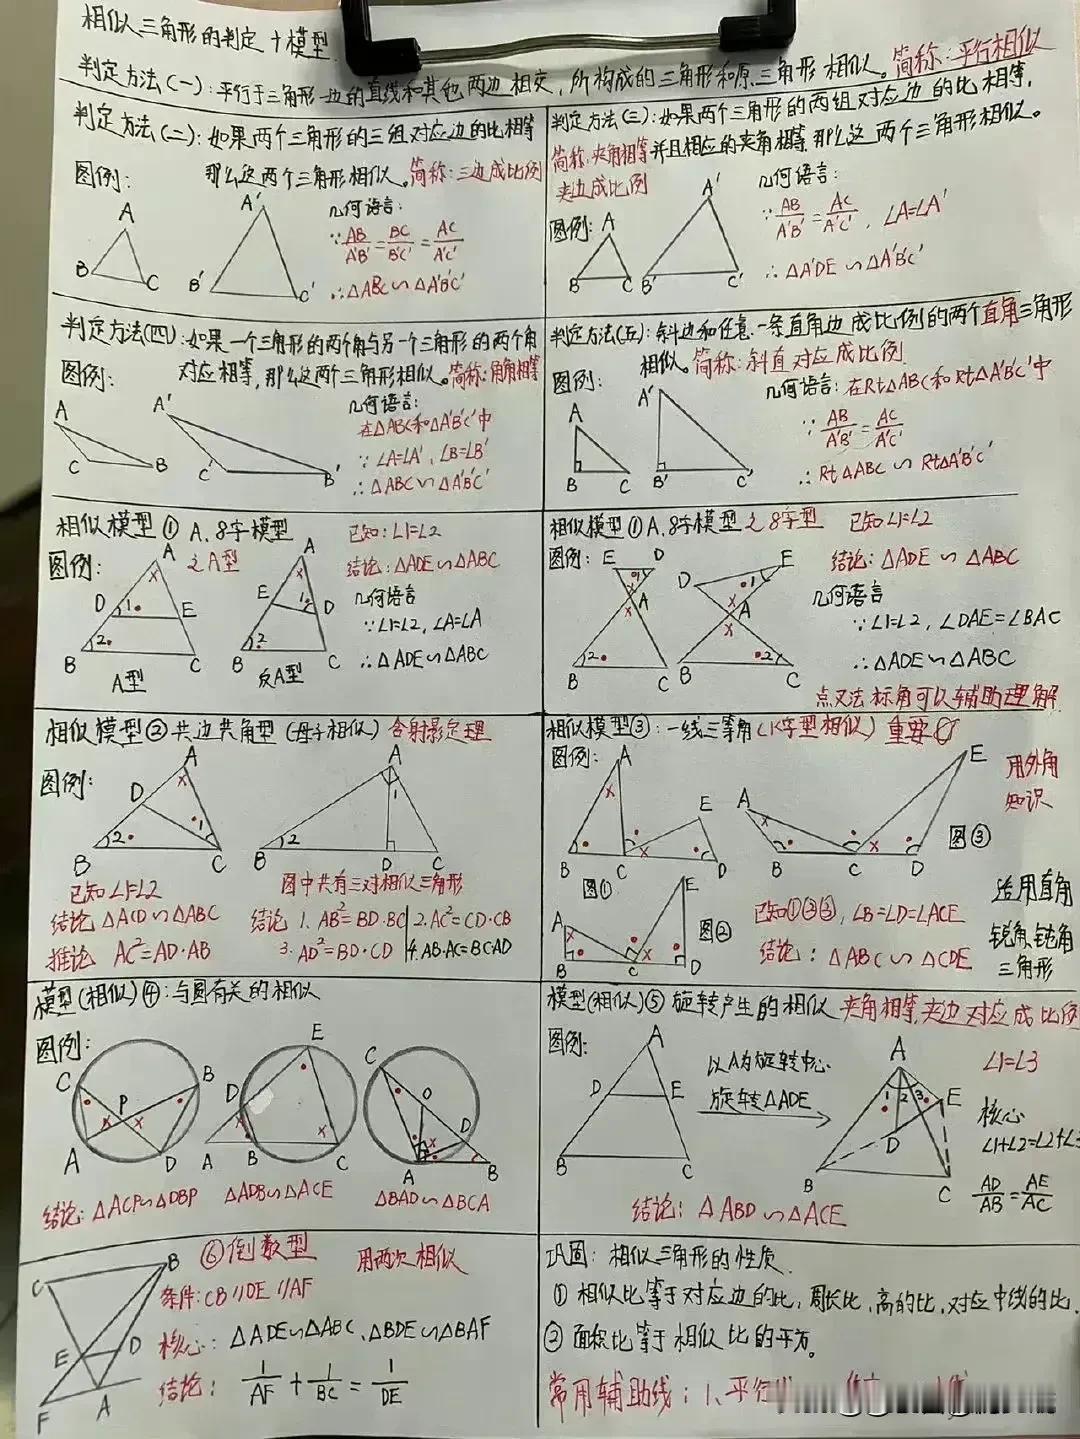 相似三角形的判定+模型
判定方法(一):平行于三角形一边的直线和其他两边相交,所构成的三角形和原三角形相似。简称:平行相似
判定方法(二):如果两个三角形的三组对应边的比相等
那么这两个三角形相似。简称:三边成比例
图例:
A
B
C
A'
B'
C'
几何语言:
∵AB/A'B'=BC/B'C'=AC/A'C'
∴△ABC∽△A'B'C'
判定方法(三):如果两个三角形的两组对应边的比相等,
简称:夹角相等并且相应的夹角相等,那么这两个三角形相似。
夹边成比例
图例:
A
B
C
A'
B'
C'
几何语言:
∵AB/A'B'=AC/A'C',∠A=∠A'
∴△A'DE∽△A'B'C'
判定方法(四):如果一个三角形的两个角与另一个三角形的两个角
对应相等,那么这两个三角形相似。简称:角角相等
图例:
A
C
B
A'
C'
B'
几何语言:
在△ABC和△A'B'C'中
∵∠A=∠A',∠B=∠B'
∴△ABC∽△A'B'C'
判定方法(五):斜边和任意一条直角边成比例的两个直角三角形
相似。简称:斜直对应成比例
图例:
A
B
C
A'
B'
C'
几何语言:在Rt△ABC和Rt△A'B'C'中
∵AB/A'B'=AC/A'C'
∴Rt△ABC∽Rt△A'B'C'
相似模型①A、8字模型
之A型
图例:
A
D
1
E
2
B
C
A型
A
E
1
D
2
B
C
反A型
已知:∠1=∠2
结论:△ADE∽△ABC
几何语言
∵∠1=∠2,∠A=∠A
∴△ADE∽△ABC
相似模型①A、8字模型之8字型 已知∠1=∠2
图例:
E
D
1
A
2
B
C
E
D
1
A
2
B
C
结论:△ADE∽△ABC
几何语言
∵∠1=∠2,∠DAE=∠BAC
∴△ADE∽△ABC
点叉法标角可以辅助理解
相似模型②共边共角型(母子相似)含射影定理
图例:
A
D
2
1
B
C
A
1
2
B
D
C
已知∠1=∠2
结论△ACD∽△ABC
推论 AC²=AD·AB
图中共有三对相似三角形
结论 1. AB²=BD·BC 2. AC²=CD·CB
3. AD²=BD·CD 4. AB·AC=BC·AD
相似模型③:一线三等角(K字型相似)重要
图例:
A
E
B
C
D
图①
A
E
B
C
D
图②
A
E
B
C
D
图③
用外角
知识
适用直角
锐角、钝角
三角形
已知①②③,∠B=∠D=∠ACE
结论:△ABC∽△CDE
模型(相似)④:与圆有关的相似
图例:
C
B
P
A
D
E
D
A
B
C
C
O
D
A
B
结论:△ACP∽△DBP △ADB∽△ACE △BAD∽△BCA
模型(相似)⑤旋转产生的相似 夹角相等,夹边对应成比例
图例:
A
D
E
B
C
以A为旋转中心
旋转△ADE
A
1
2
3
E
D
B
C
∠1=∠3
核心
∠1+∠2=∠2+∠3
AD/AB=AE/AC
结论:△ABD∽△ACE
⑥倒数型 用两次相似
C
B
E
D
F
A
条件:CB//DE//AF
核心:△ADE∽△ABC、△BDE∽△BAF
结论:1/AF+1/BC=1/DE
巩固:相似三角形的性质
①相似比等于对应边的比,周长比,高的比,对应中线的比.
②面积比等于相似比的平方。
常用辅助线:1、平行